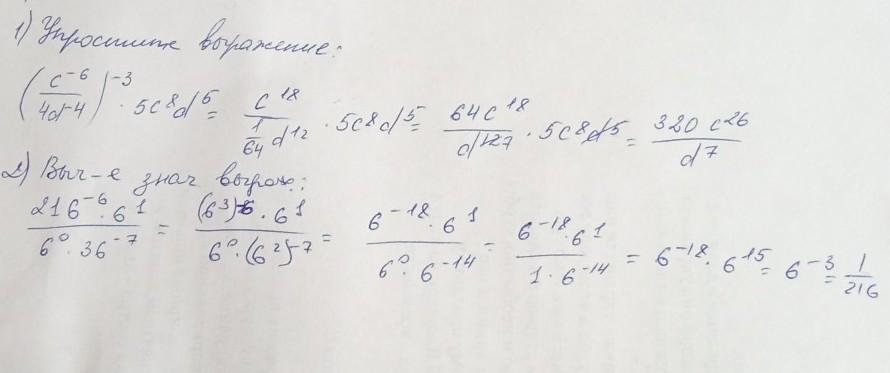 1) Упростите выражение:
(c⁻⁶/4d⁻⁴)⁻³ · 5c⁸d⁵ = c¹⁸/(1/64 d¹²) · 5c⁸d⁵ = 64c¹⁸/d¹²⁷ · 5c⁸d⁵ = 320c²⁶/d⁷
2) Выч-е знач выраж.:
216⁻⁶·6¹/6⁰·36⁻⁷ = (6³)⁻⁶·6¹/6⁰·(6²)⁻⁷ = 6⁻¹⁸·6¹/6⁰·6⁻¹⁴ = 6⁻¹⁸·6¹/1·6⁻¹⁴ = 6⁻¹⁸·6¹⁵ = 6⁻³ = 1/216